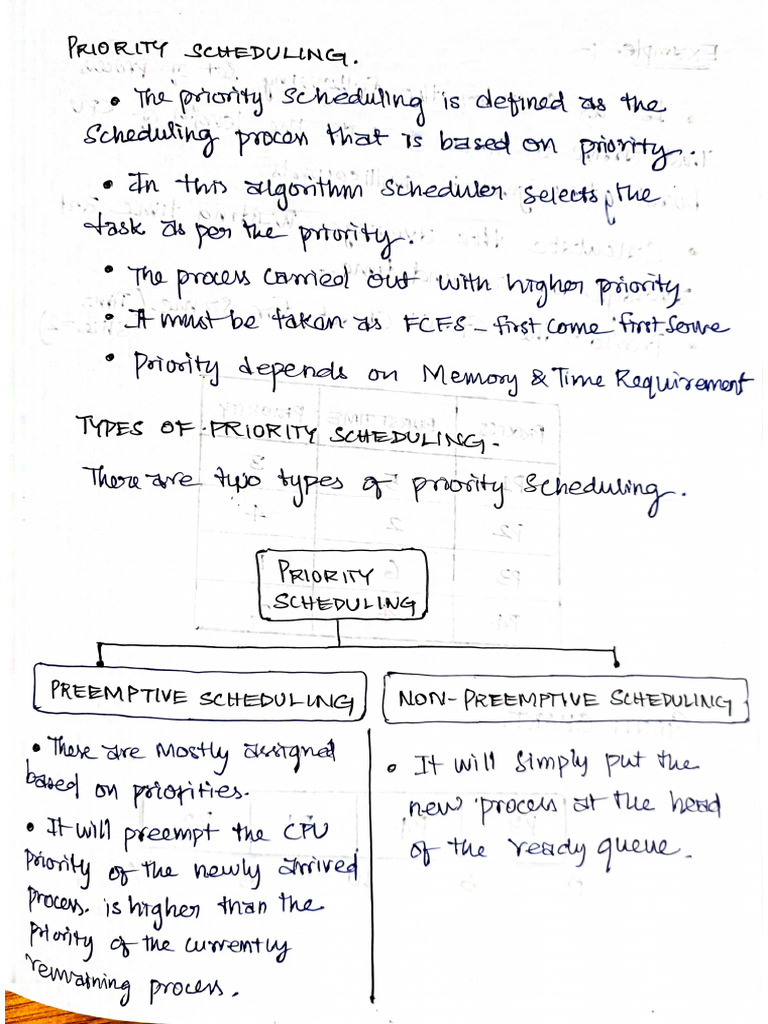 PRIORITY SCHEDULING.
• The priority scheduling is defined as the
scheduling process that is based on priority.
• In this algorithm scheduler selects the
task as per the priority.
• The process carried out with higher priority.
• It must be taken as FCFS - first come first serve
• Priority depends on Memory & Time Requirement
TYPES OF PRIORITY SCHEDULING -
There are two types of priority scheduling.
PRIORITY
SCHEDULING
PREEMPTIVE SCHEDULING
• These are mostly assigned
based on priorities.
• It will preempt the CPU
priority of the newly arrived
process. is higher than the
priority of the currently
remaining process.
NON-PREEMPTIVE SCHEDULING
• It will simply put the
new process at the head
of the ready queue.